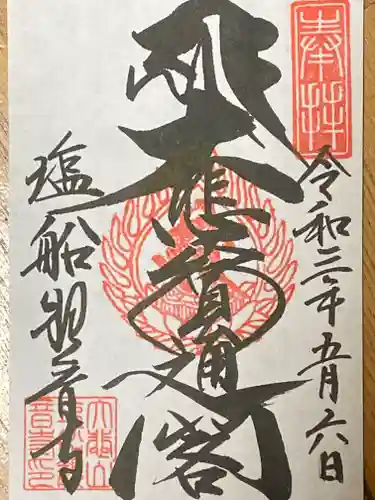 奉拝
令和三年五月六日
大悲圓通閣
塩船観音寺